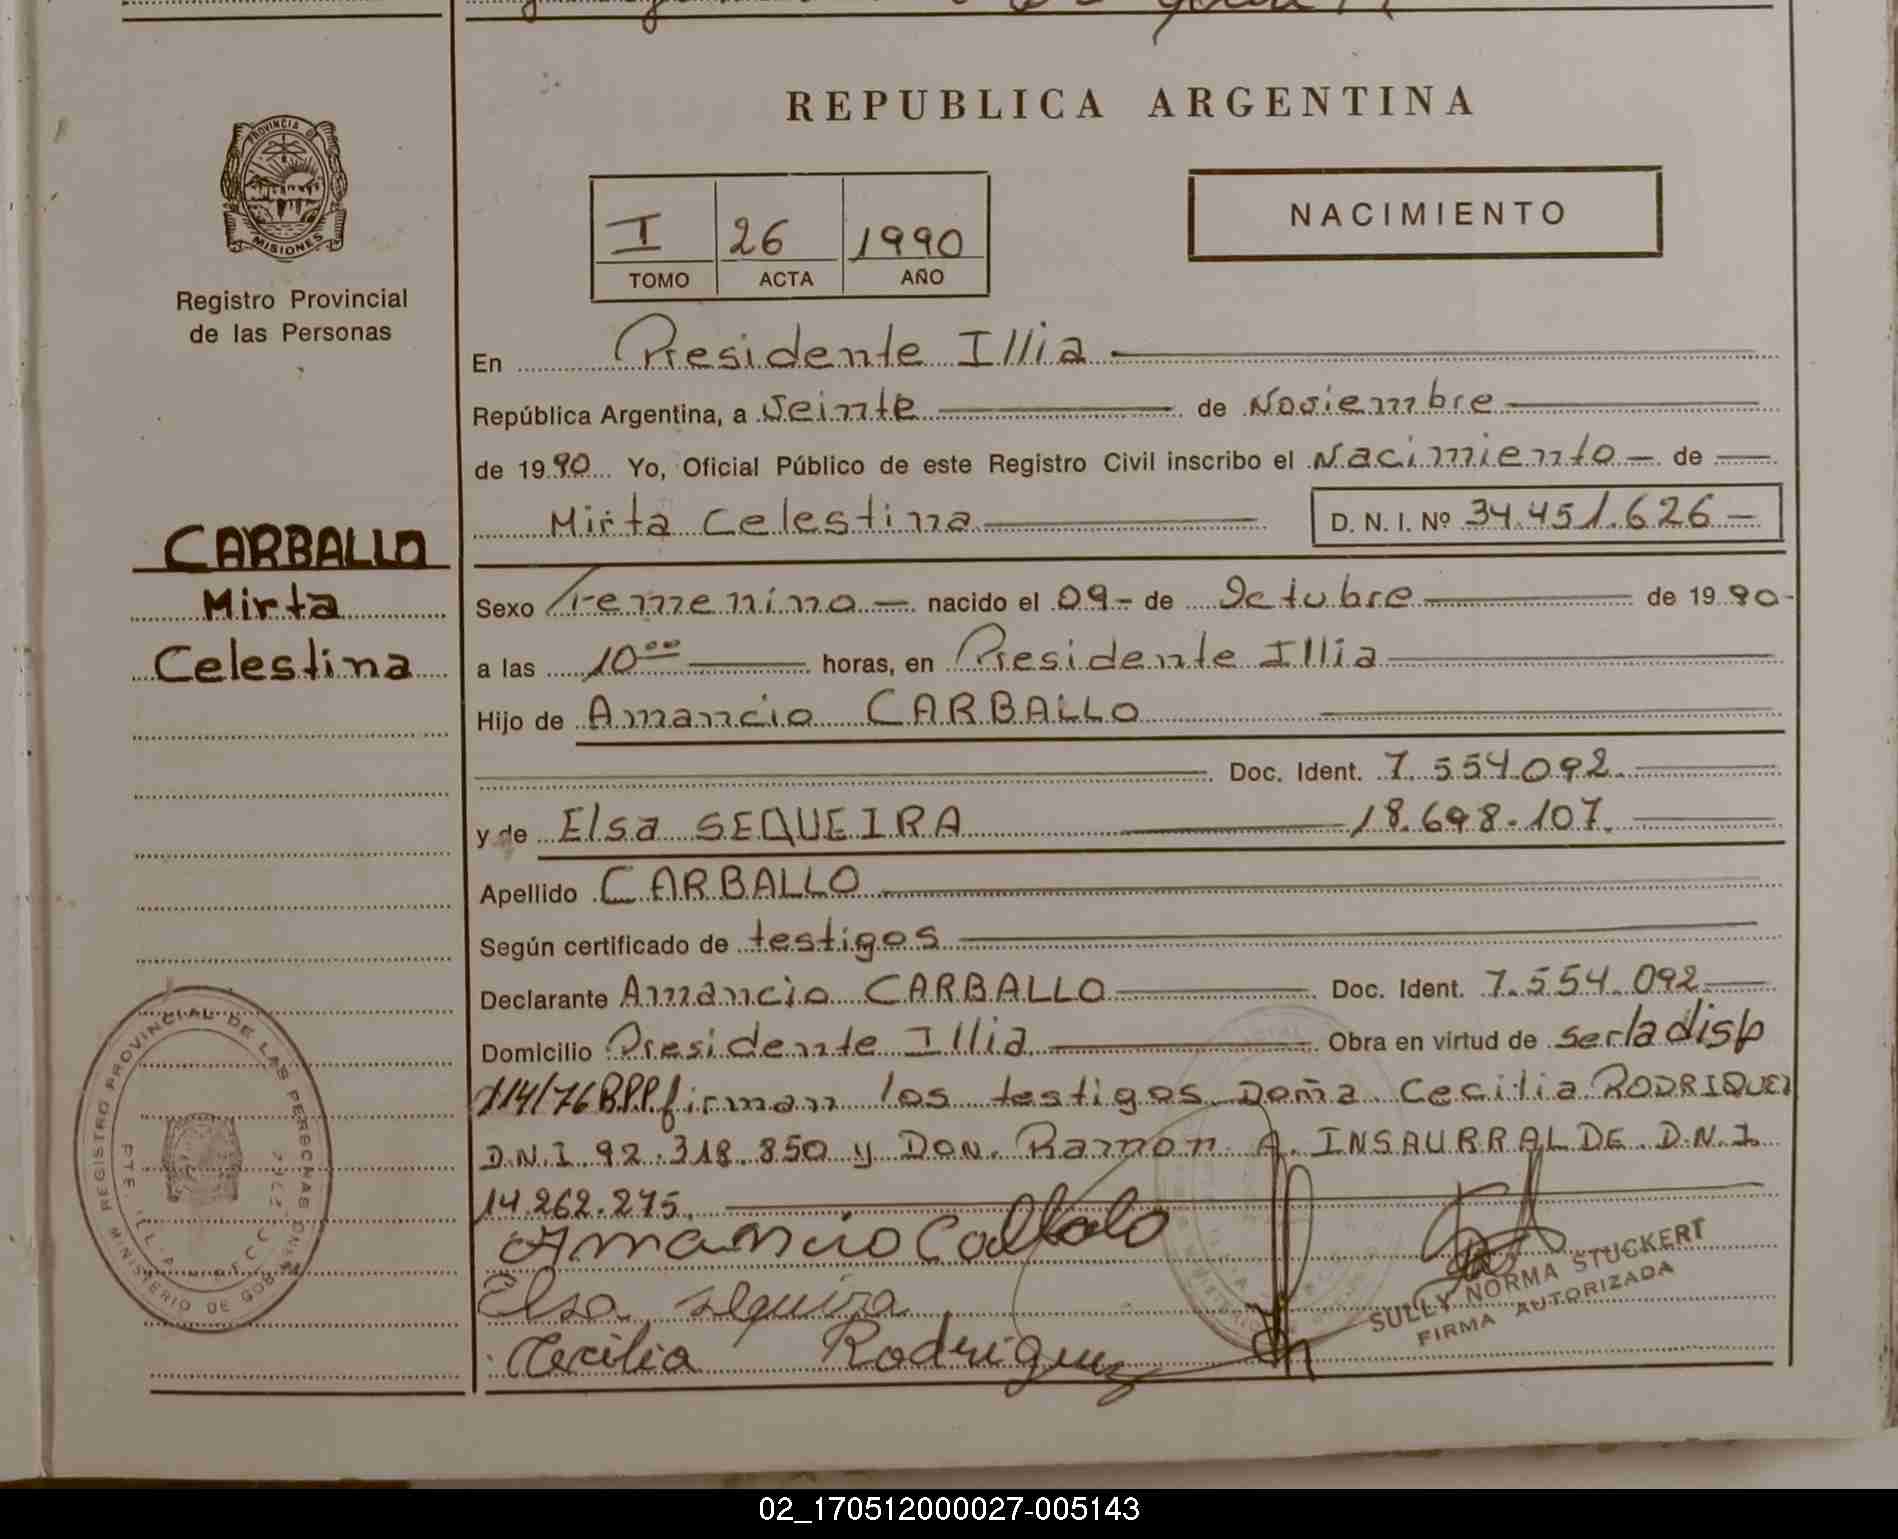 REPUBLICA ARGENTINA
PROVINCIA DE
MISIONES
Registro Provincial
de las Personas
I 26 1990
TOMO ACTA AÑO
NACIMIENTO
En Presidente Illia
República Argentina, a Veinte de Noviembre
de 1990 Yo, Oficial Público de este Registro Civil inscribo el Nacimiento de
Mirta Celestina D. N. I. Nº 34.451.626
CARBALLO
Mirta
Celestina
Sexo Femenino nacido el 09 de Octubre de 1990
a las 10 00 horas, en Presidente Illia
Hijo de Amancio CARBALLO
Doc. Ident. 7.554.092
y de Elsa SEQUEIRA 18.698.107.
Apellido CARBALLO
Según certificado de testigos
Declarante Amancio CARBALLO Doc. Ident. 7.554.092
Domicilio Presidente Illia Obra en virtud de ser la disp
114/76 firman los testigos Doña Cecilia RODRIQUEZ
D.N.I 92.318.850 y DON. Ramon A. INSAURRALDE D.N.I
14.262.275.
Amancio Carballo
Elsa sequira
Cecilia Rodriguez
SULLY NORMA STUCKERT
FIRMA AUTORIZADA
REGISTRO PROVINCIAL DE LAS PERSONAS
MINISTERIO DE GOB
02_170512000027-005143